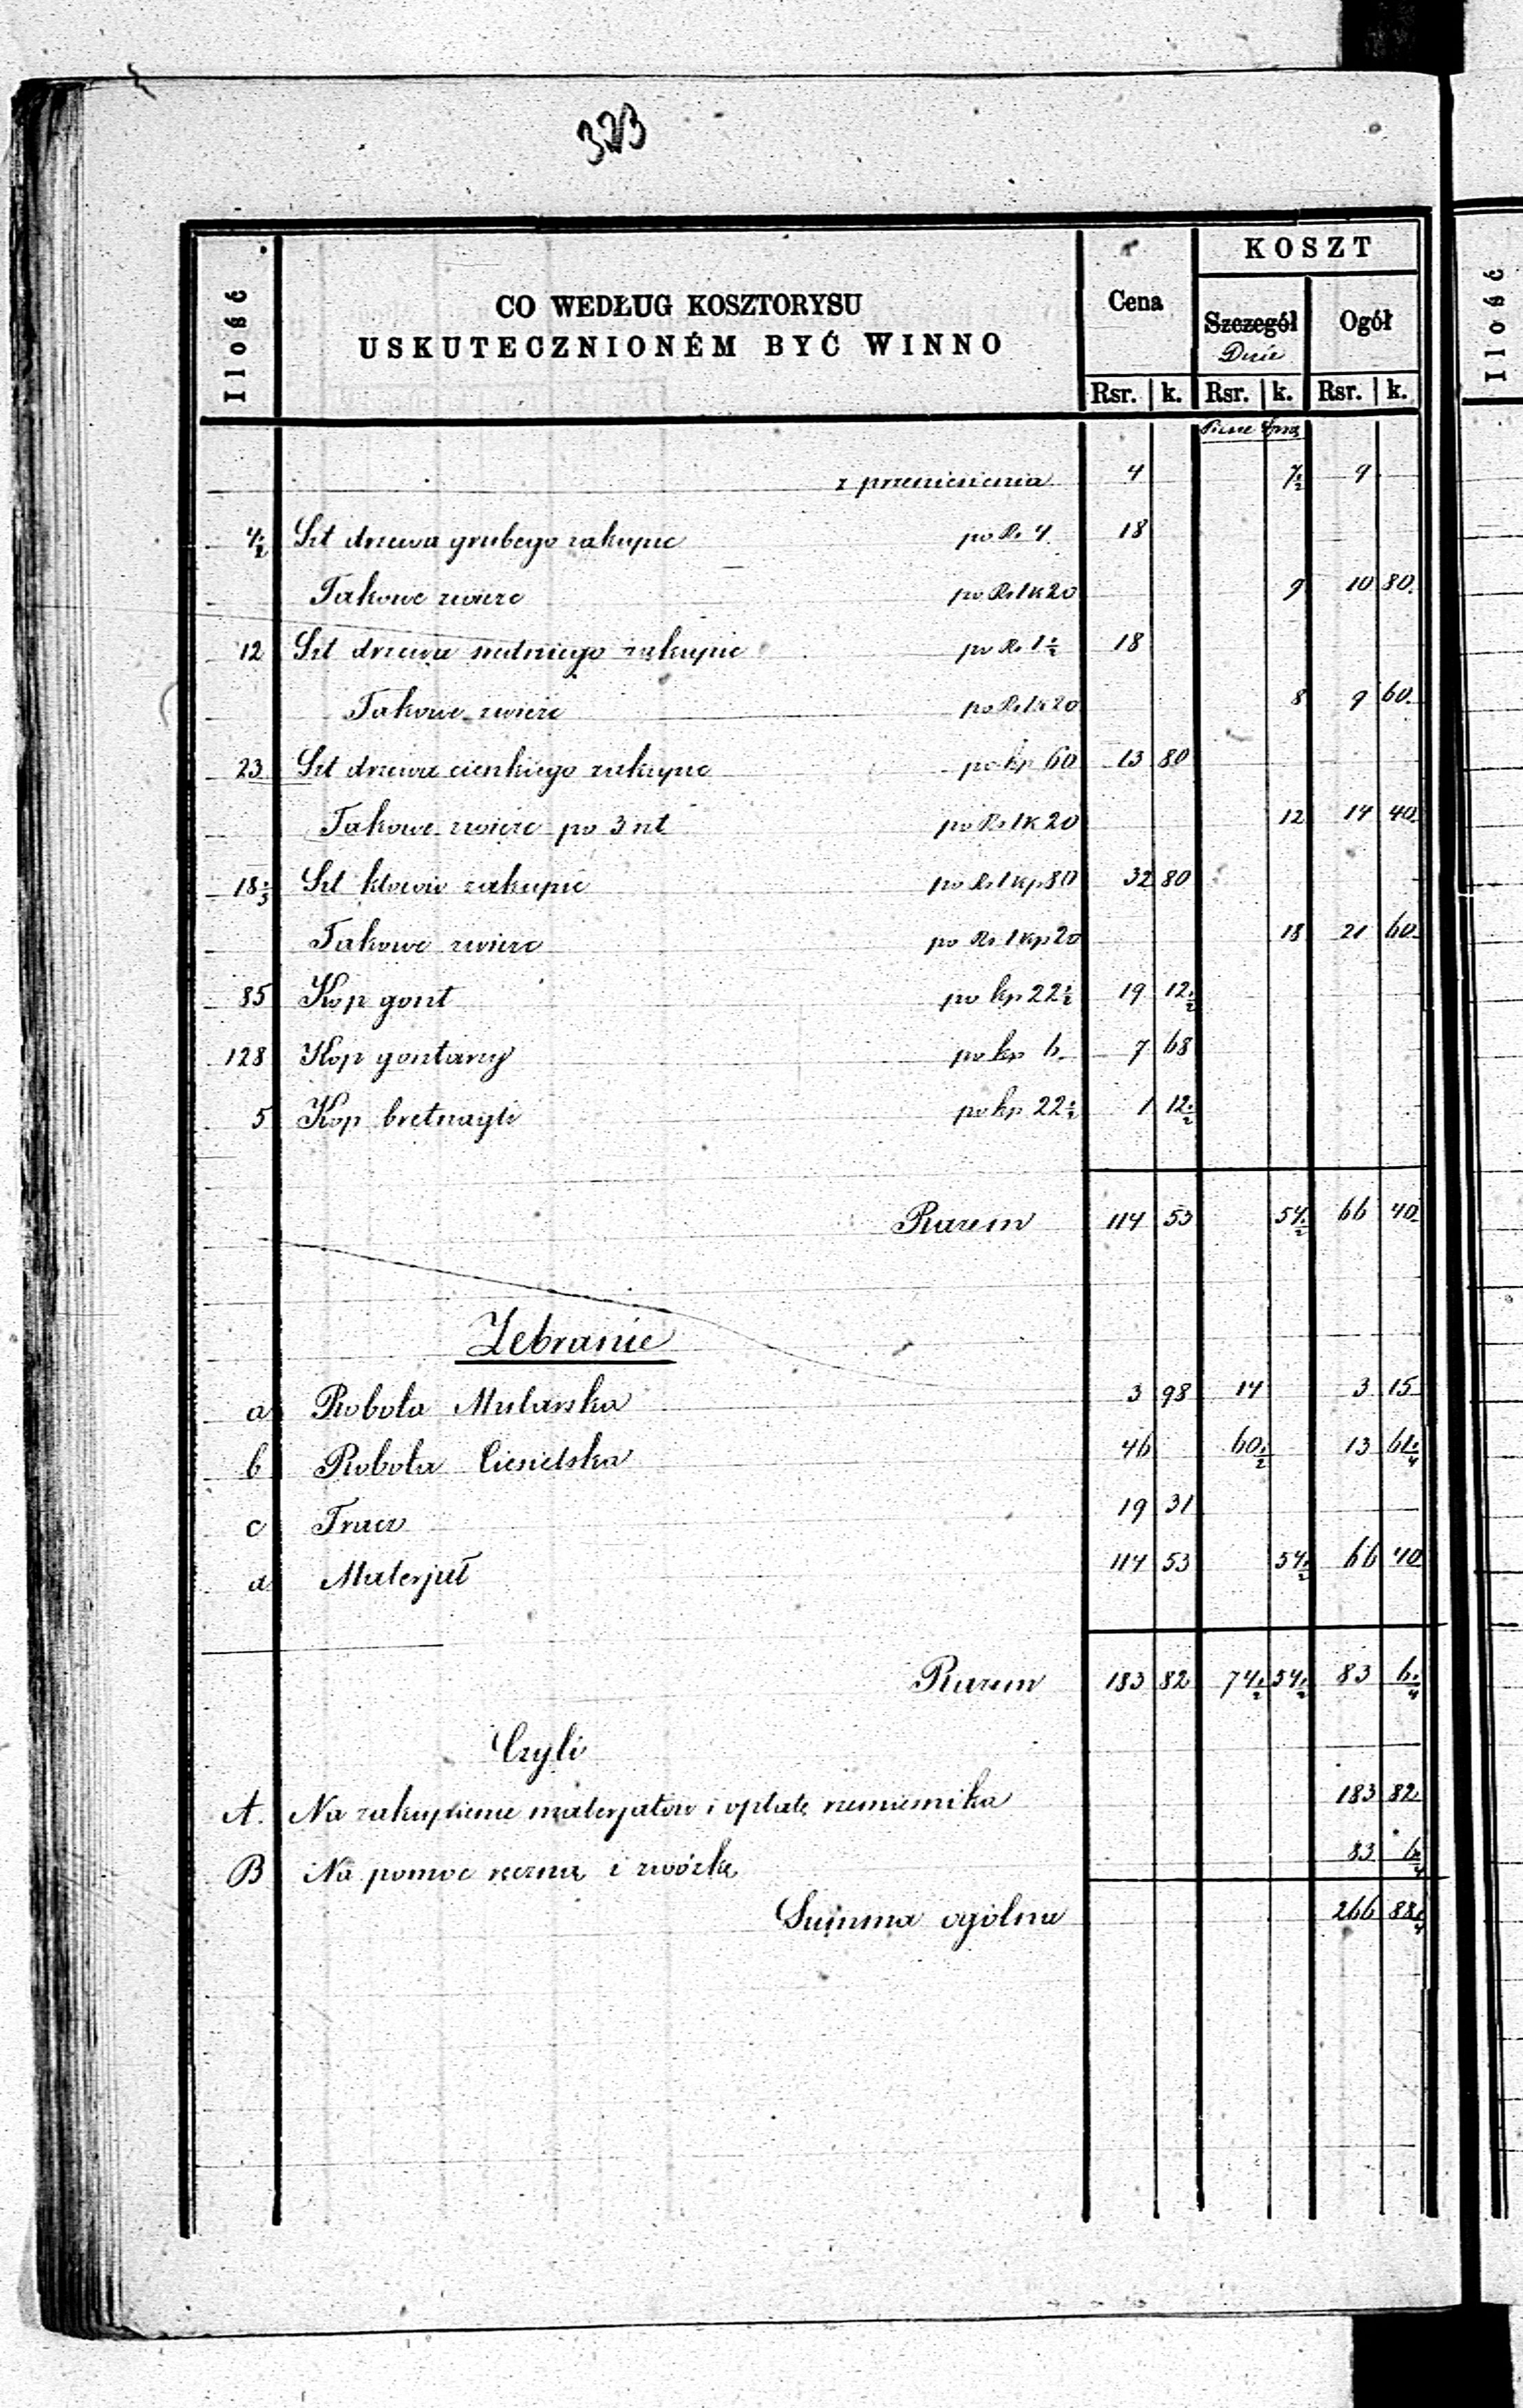 323
Ilość
CO WEDŁUG KOSZTORYSU
USKUTECZNIONÉM BYĆ WINNO
Cena
KOSZT
Szczegół
Dnie
Ogół
Rsr. k. Rsr. k. Rsr. k.
Piesze
z przeniesienia 4 7½ 9
4½ Szt drzewa grubego zakupić po Rs 4 18
Takowe zwieźć po Rs 1 k 20 9 10 80
12 Szt drzewa średniego zakupić po Rs 1½ 18
Takowe zwieźć po Rs 1 k 20 8 9 60
23 Szt drzewa cienkiego zakupić po kp 60 13 80
Takowe zwieźć po 3 szt po Rs 1 k 20 12 14 40
18 Szt kloców zakupić po Rs 1 kp 80 32 80
Takowe zwieźć po Rs 1 kp 20 18 21 60
85 Kop gont po kp 22½ 19 12½
128 Kop gontaży po kp 6 7 68
5 Kop bretnagli po kp 22½ 1 12½
Razem 114 53 54½ 66 40
Zebranie
a Robota Mularska 3 98 14 3 15
b Robota Ciesielska 46 60½ 13 61¼
c Tracz 19 31
d Materjał 114 53 54½ 66 40
Razem 183 82 74½ 54½ 83 6¼
Czyli
A. Na zakupienie materjałów i opłatę rzemieśnika 183 82
B Na pomoc ręczną i zwózkę 83 6¼
Summa ogólna 266 88¼
Ilość